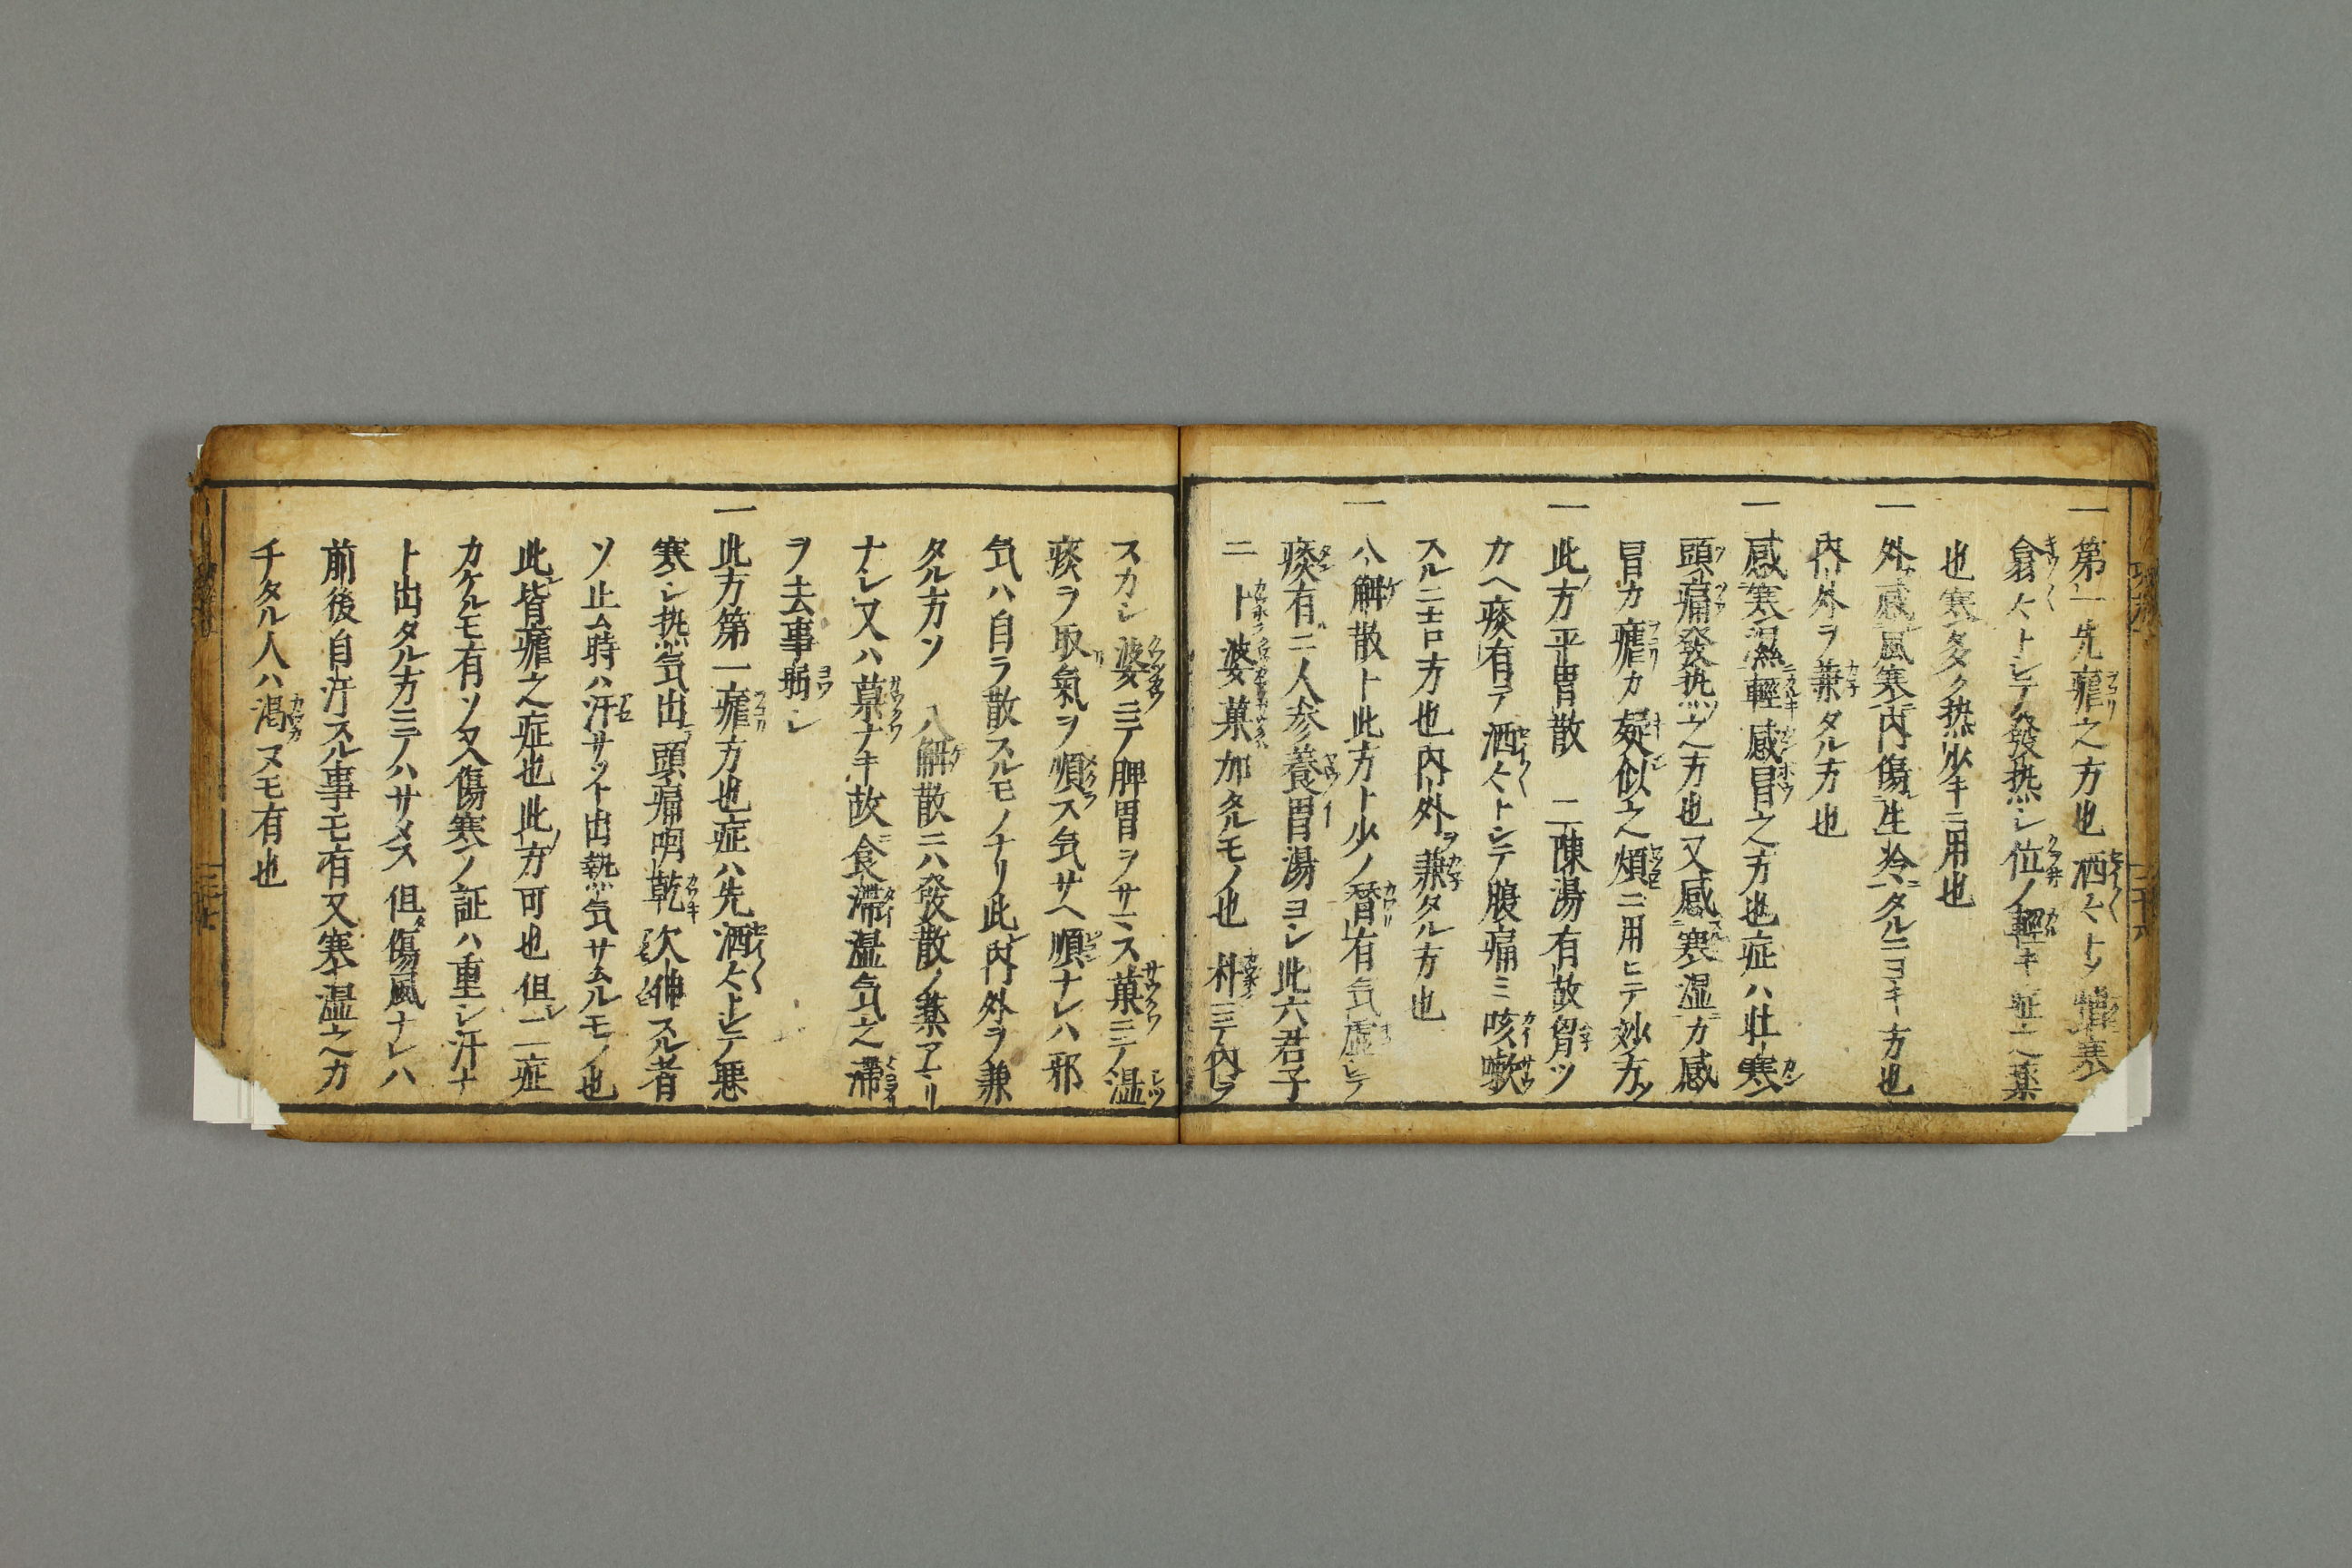 一 第一先瘧之方也洒々トソ憎寒
翕々トシテ發热シ位ノ輕キ症之薬
也寒多ク热少キニ用也
一 外感風寒内傷生冷タルニヨキ方也
内外ヲ兼タル方也
一 感寒濕輕感冒之方也症ハ壮寒
頭痛發热之方也又感寒湿カ感
冒カ瘧カ疑似之煩ニ用ヒテ妙方ソ
一 此方平胃散 二陳湯有故胷ツ
カヘ痰有テ洒々トシテ腹痛ミ咳嗽
スルニ吉方也内外ヲ兼タル方也
一 八解散ト此方ト少ノ替有気虚シテ
痰有ニ人参養胃湯ヨシ此六君子
ニ 卜婆菓加タルモノ也 朴ニテ内ヲ
スカシ 婆ニテ脾胃ヲサマス菓ニテ温
痰ヲ取氣ヲ順ス気サヘ順ナレハ邪
気ハ自ラ散スルモノナリ此内外ヲ兼
タル方ソ 八解散ニハ發散ノ薬アマリ
ナシ又ハ菓ナキ故食滞湿気之滞
ヲ去事弱シ
一 此方第一瘧方也症ハ先洒々トシテ悪
寒シ热気出頭痛咽乾欠伸スル者
ソ止ム時ハ汗サット出熱気サムルモノ也
此皆瘧之症也此方可也但二症
カケルモ有ソ又傷寒ノ証ハ重シ汗ナ
ト出タル方ニテハサメス 但傷風ナレハ
前後自汗スル事モ有又寒湿之カ
チタル人ハ渇ヌモ有也